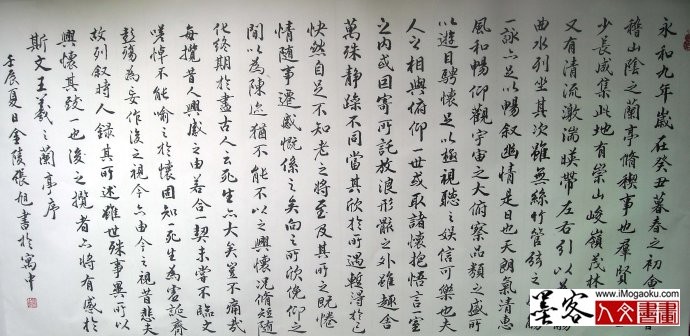 永和九年歲在癸丑暮春之初會
稽山陰之蘭亭脩稧事也群賢
少長咸集此地有崇山峻嶺茂林
又有清流激湍暎帶左右引以
曲水列坐其次雖無絲竹管弦之
一詠亦足以暢叙幽情是日也天朗氣清惠
風和暢仰觀宇宙之大俯察品類之盛所
以遊目騁懷足以極視聽之娛信可樂也夫
人之相與俯仰一世或取諸懷抱悟言一室
之內或因寄所託放浪形骸之外雖趣舍
萬殊靜躁不同當其欣於所遇暫得於己
快然自足不知老之將至及其所之既惓
情隨事遷感慨係之矣向之所欣俛仰之
間以為陳迹猶不能不以之興懷況脩短隨
化終期於盡古人云死生亦大矣豈不痛哉
每攬昔人興感之由若合一契未嘗不臨文
嗟悼不能喻之於懷固知一死生為虛誕齊
彭殤為妄作後之視今亦由今之視昔悲夫
故列叙時人錄其所述雖世殊事異所以
興懷其致一也後之攬者亦將有感於
斯文王羲之蘭亭序
壬辰夏日金陵張旭書於寓中
墨客
www.iMogaoku.com